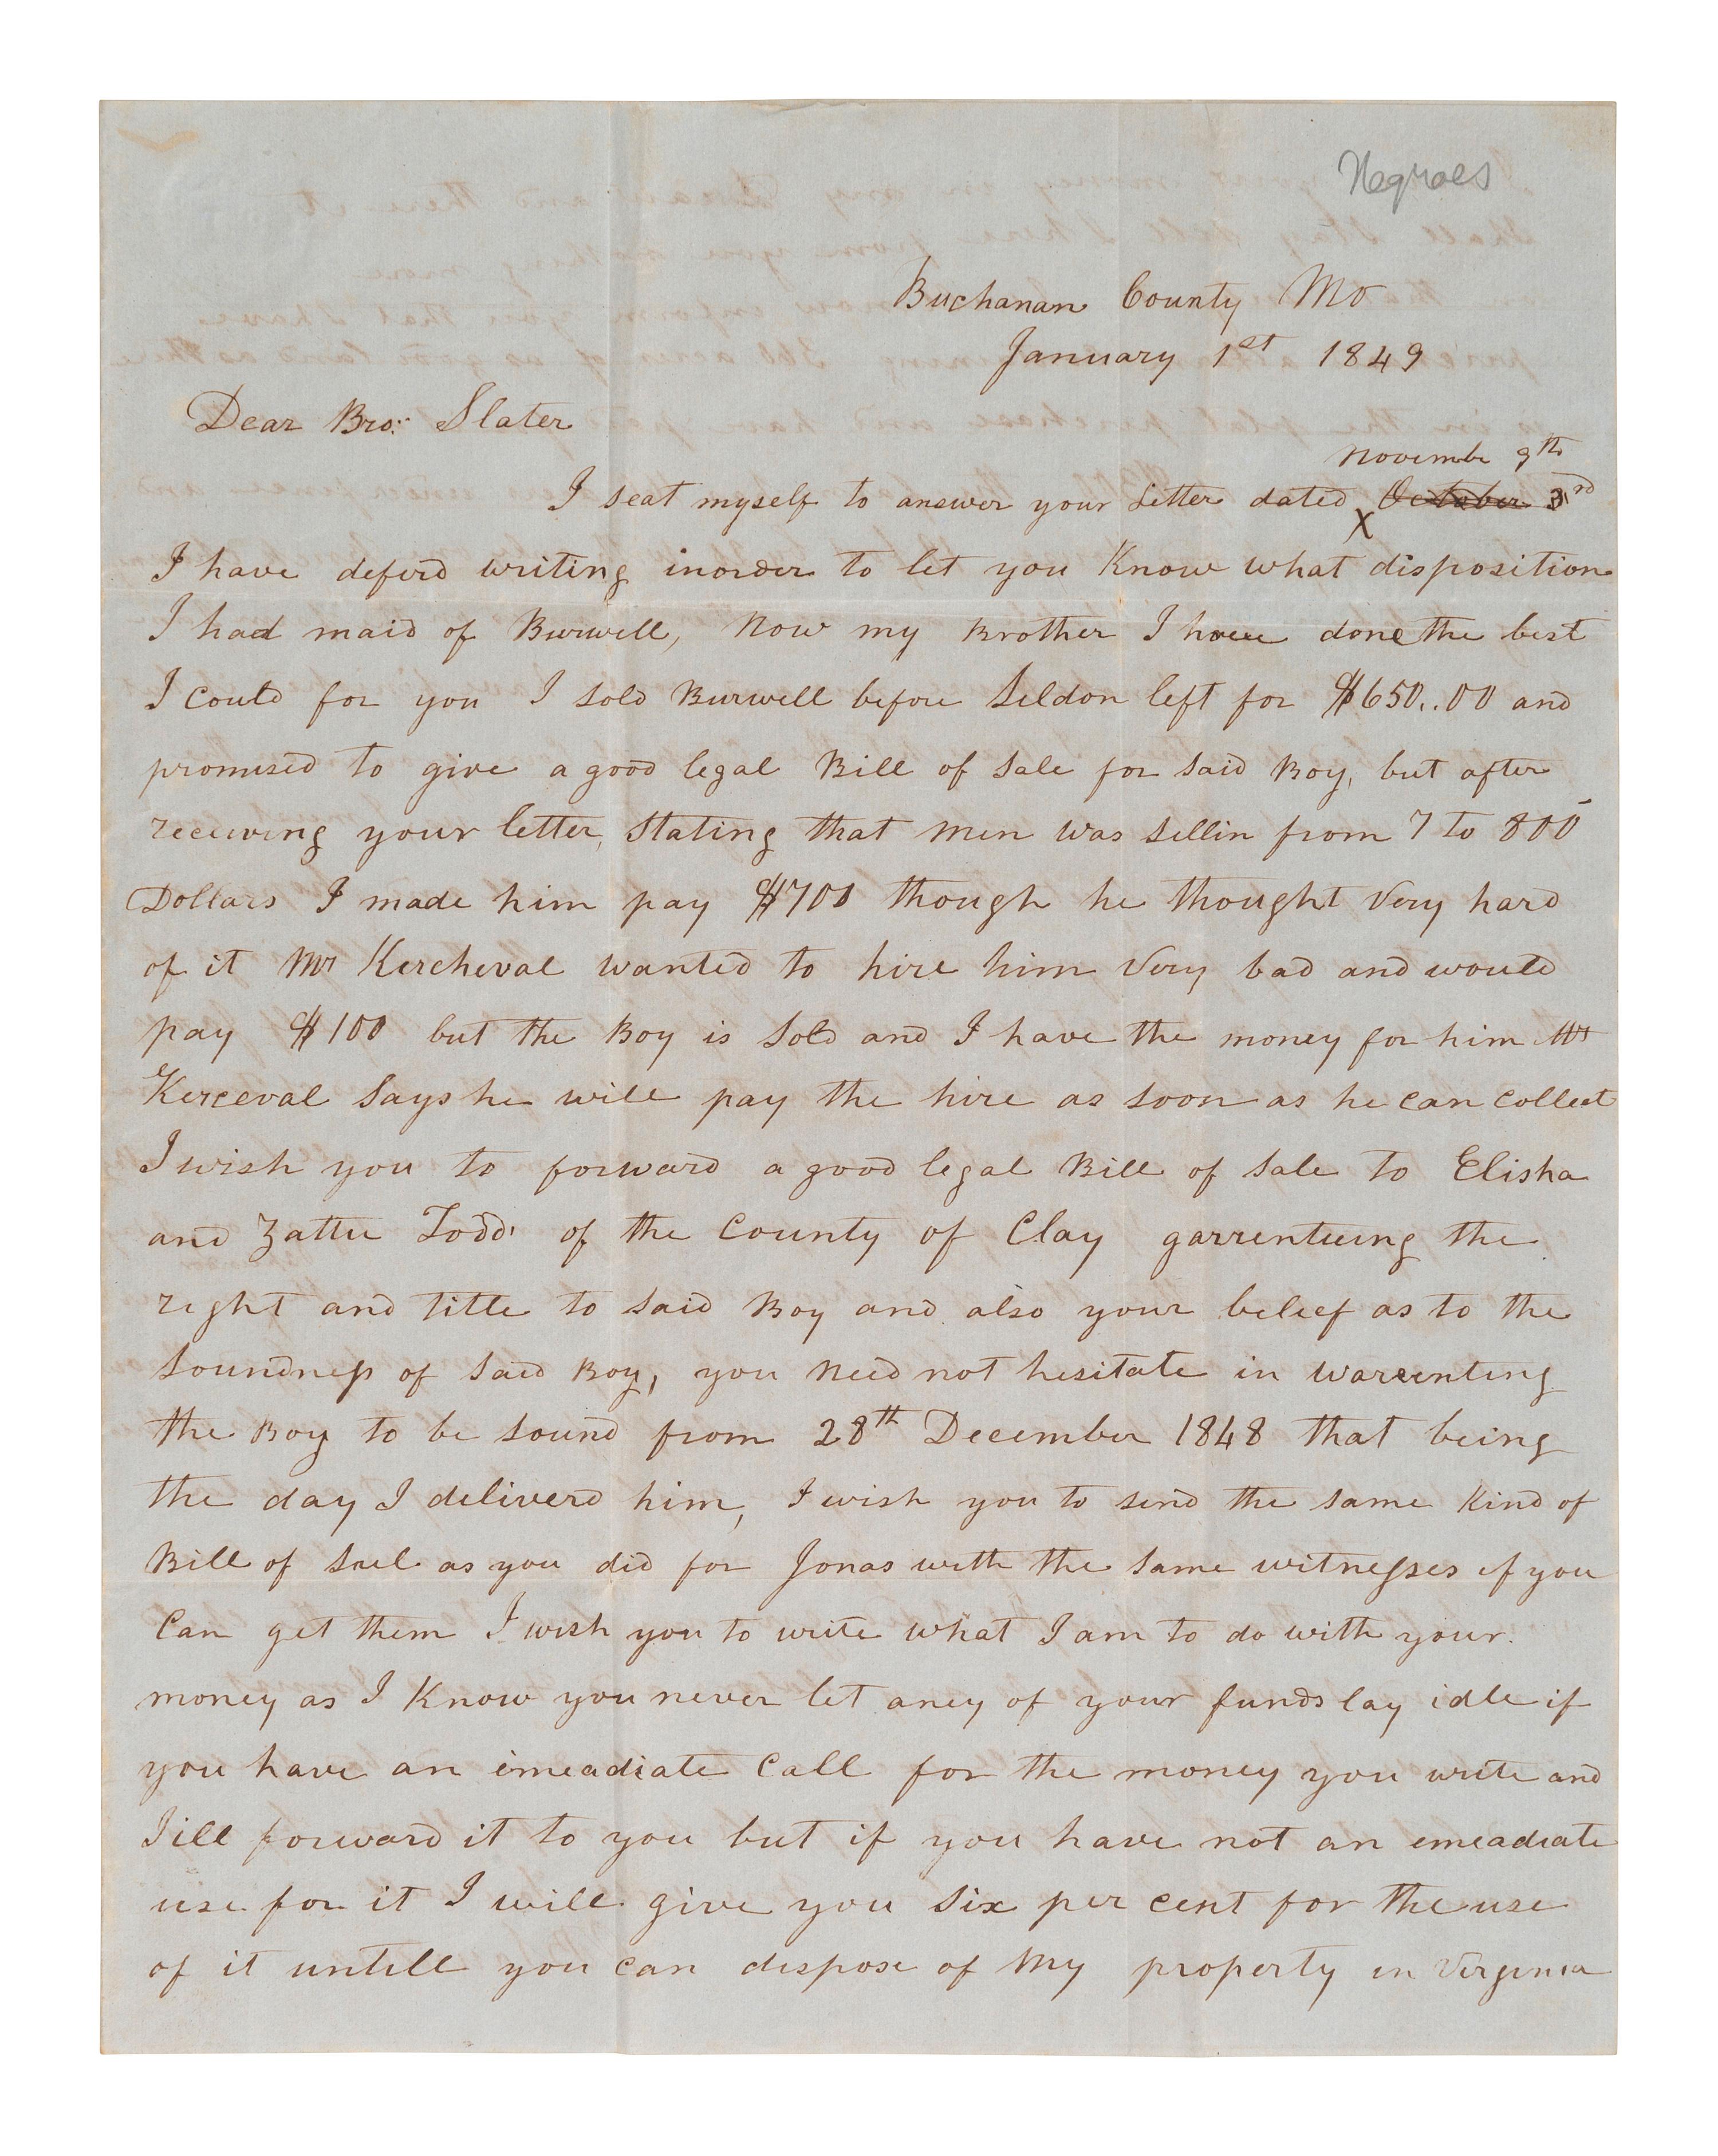 Negroes
Buchanan County Mo
January 1st 1849
Dear Bro: Slater
November 9th
I seat myself to answer your Letter dated October 3rd
X
I have deferd writing inorder to let you Know what disposition
I had maid of Burwell, Now my Brother I have done the best
I could for you I sold Burwell before Seldon left for $650..00 and
promised to give a good legal Bill of Sale for Said Boy, but after
receiving your letter, Stating that men was Sellin from 7 to 800
Dollars I made him pay $700 though he thought Very hard
of it Mr Kercheval wanted to hire him Very bad and would
pay $100 but the Boy is Sold and I have the money for him Mr
Kerceval Says he will pay the hire as soon as he can collect
I wish you to forward a good legal Bill of Sale to Elisha
and Zattu Todd of the County of Clay garrentieing the
right and title to Said Boy and also your beleef as to the
Soundness of Said Boy, you Need not hesitate in warrenting
the Boy to be Sound from 28th December 1848 that being
the day I deliverd him, I wish you to send the same Kind of
Bill of Sael as you did for Jonas with the Same witnesses if you
Can get them I wish you to write what I am to do with your
money as I Know you never let aney of your funds lay idle if
you have an imeadiate Call for the money you write and
I ill forward it to you but if you have not an emeadiate
use for it I will give you Six per cent for the use
of it untill you can dispose of My property in Virginia